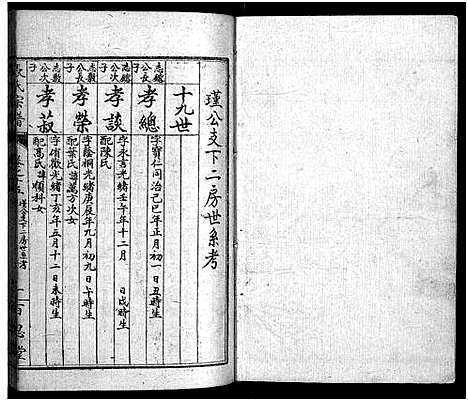 瑾公支下二房世系考
十九世
志鎔公長子
孝總
字寶仁同治己巳年正月初一日丑時生
志鎔公次子
孝談
字永言光緒壬午年十二月 日戌時生
配陳氏
志勲公長子
孝榮
字蔭桐光緒庚辰年九月初九日午時生
配葉氏諱萬方次女
志勲公次子
孝菽
字侑歡光緒丁亥年五月十二日未時生
配高氏諱順科女
氏宗譜
瑾公支下二房世系考
一
百忍堂